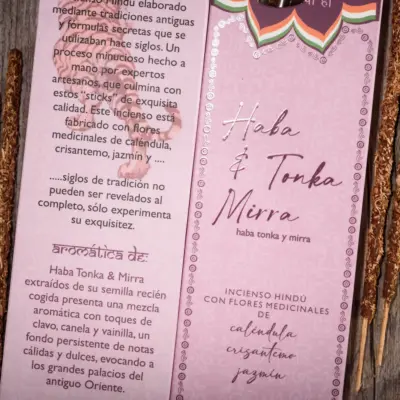 Hindú elaborado
mediante tradiciones antiguas
y fórmulas secretas que se
utilizaban hace siglos. Un
proceso minucioso hecho a
mano por expertos
artesanos, que culmina con
estos "sticks" de exquisita
calidad. Este incienso está
fabricado con flores
medicinales de caléndula,
crisantemo, jazmín y ....
.....siglos de tradición no
pueden ser revelados al
completo, sólo experimenta
su exquisitez.
aromática de:
Haba Tonka & Mirra
extraídos de su semilla recién
cogida presenta una mezcla
aromática con toques de
clavo, canela y vainilla, un
fondo persistente de notas
cálidas y dulces, evocando a
los grandes palacios del
antiguo Oriente.
Haba
& Tonka
Mirra
haba tonka y mirra
INCIENSO HINDÚ
CON FLORES MEDICINALES
DE
caléndula
crisantemo
jazmín